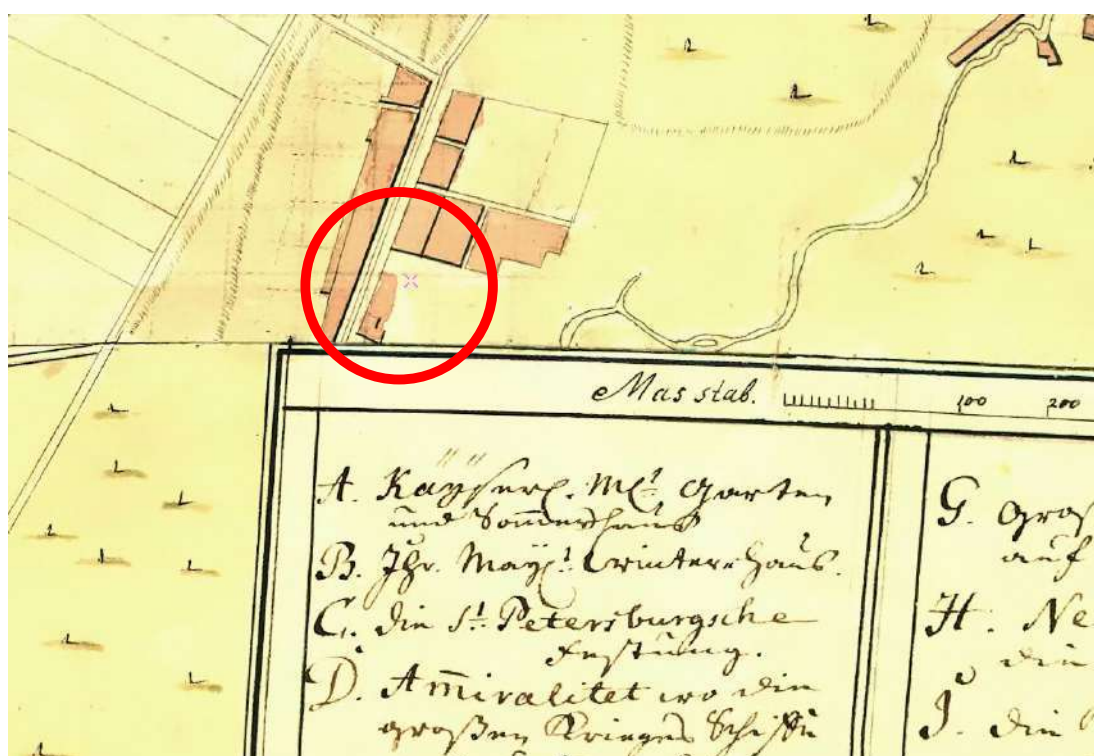 Masstab. 100 200
A. Kaÿserl. Mt. Garten
und Sommerhaus
B. Ihr. Maÿt. winter Haus.
C. die St. Petersburgsche
Festung.
D. Am̄iralitet wo die
großen Krieges Schiffe
G. Groß
auf
H. Ne
die
J. die